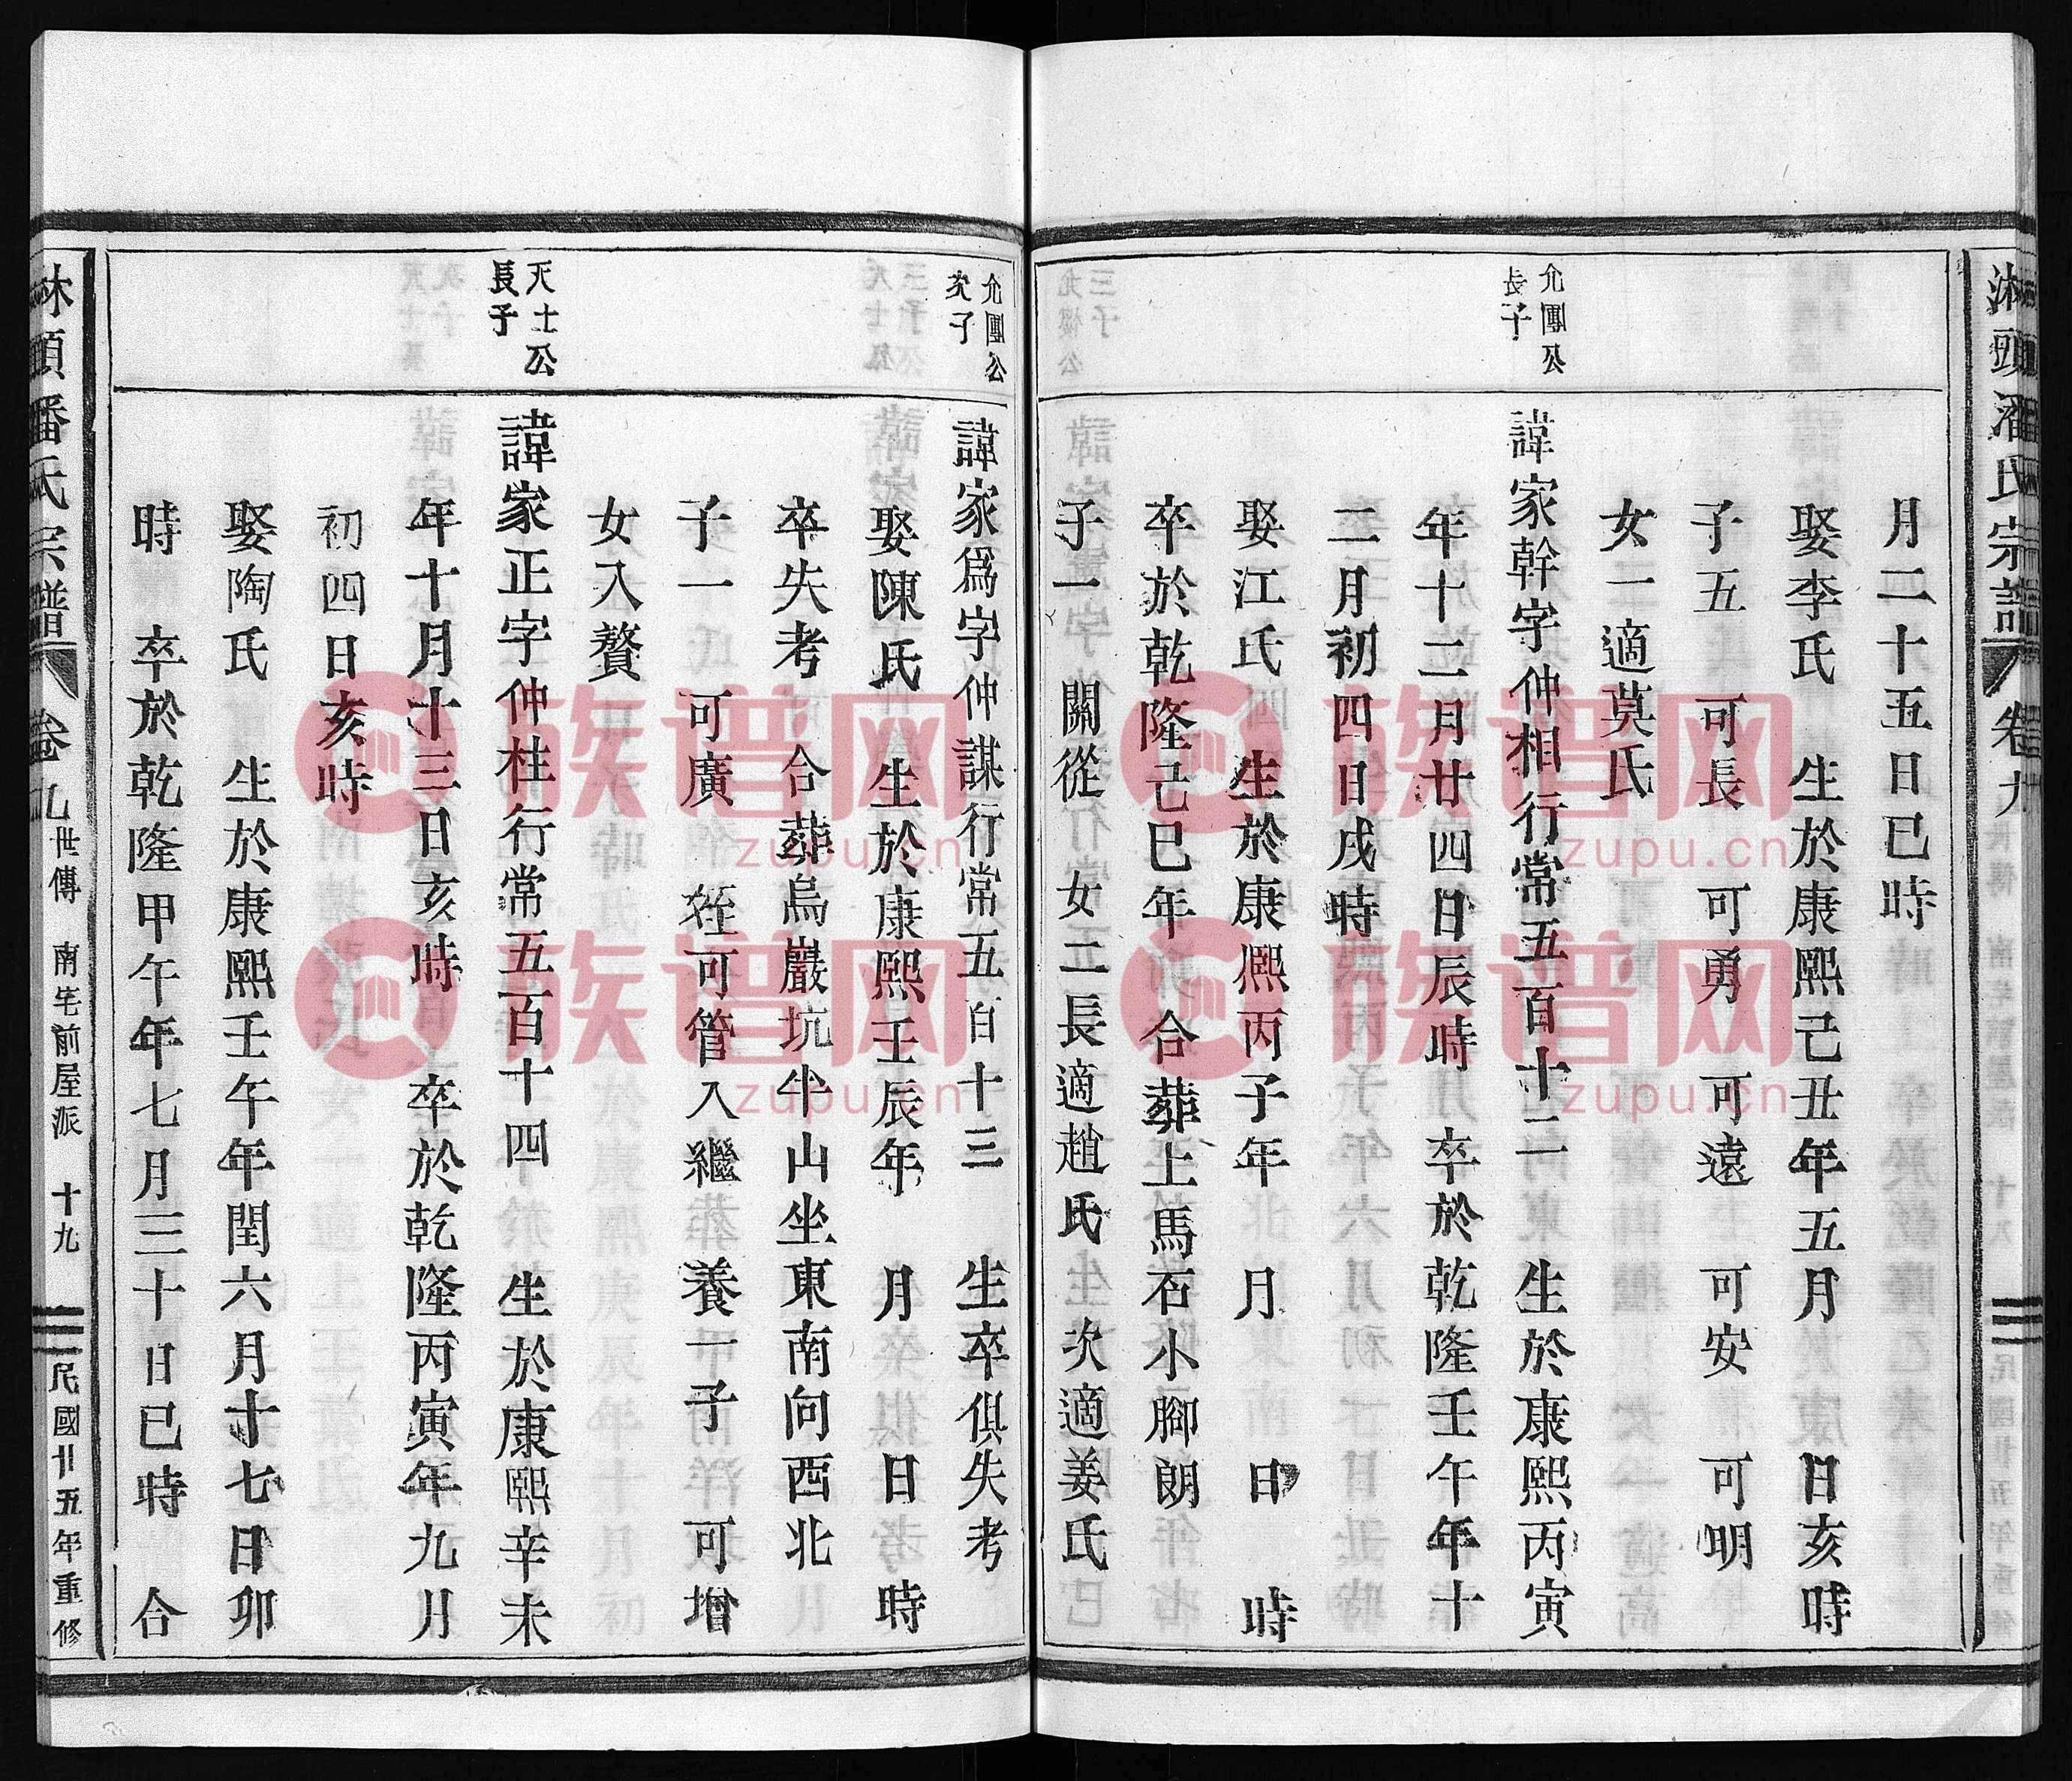 淋頭潘氏宗譜
卷九
月二十五日巳時
娶李氏　生於康熙己丑年五月　日亥時
子五　可長　可勇　可遠　可安　可明
女一適莫氏
允團公
長子
諱家幹字仲相行常五百十二　生於康熙丙寅
年十二月廿四日辰時　卒於乾隆壬午年十
二月初四日戌時
娶江氏　生於康熙丙子年　月　日　時
卒於乾隆己巳年　合葬上馬石小腳朗
子一　關從　女二長適趙氏　次適姜氏
允團公
次子
諱家爲字仲謀行常五百十三　生卒俱失考
娶陳氏　生於康熙壬辰年　月　日　時
卒失考　合葬烏巖坑半山坐東南向西北
子一　可廣　姪可管入繼　養一子　可增
女入贅
天士公
長子
諱家正字仲柱行常五百十四　生於康熙辛未
年十月十三日亥時　卒於乾隆丙寅年九月
初四日亥時
娶陶氏　生於康熙壬午年閏六月十七日卯
時　卒於乾隆甲午年七月三十日巳時　合
淋頭潘氏宗譜
卷九
世傳　南宅前屋派　十九
民國廿五年重修
族谱网
zupu.cn
族谱网
zupu.cn
族谱网
zupu.cn
族谱网
zupu.cn